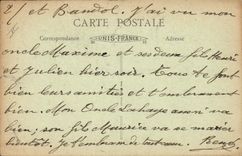 et Bandol. J'ai vu mon
CARTE POSTALE
Correspondance UNIS-FRANCE Adresse
oncle Maxime et ses deux fils Henri
et Julien hier soir. Tous te font
bien leurs amitiés et t'embrassent
bien. Mon Oncle va
bien; son fils Maurice va se marier
bientôt. Je t'embrasse